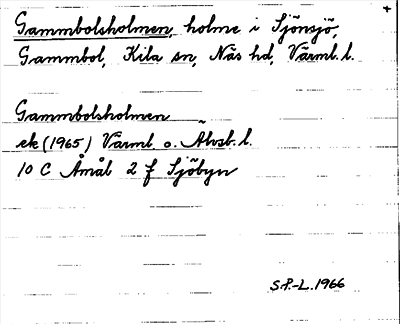 Gammbolsholmen, holme i Sjönsjö,
Gammbol, Kila sn, Näs hd, Värml. l.
Gammbolsholmen
ek (1965) Värml. o. Älvsb. l.
10 C Åmål 2 f Sjöbyn
S.P.-L. 1966